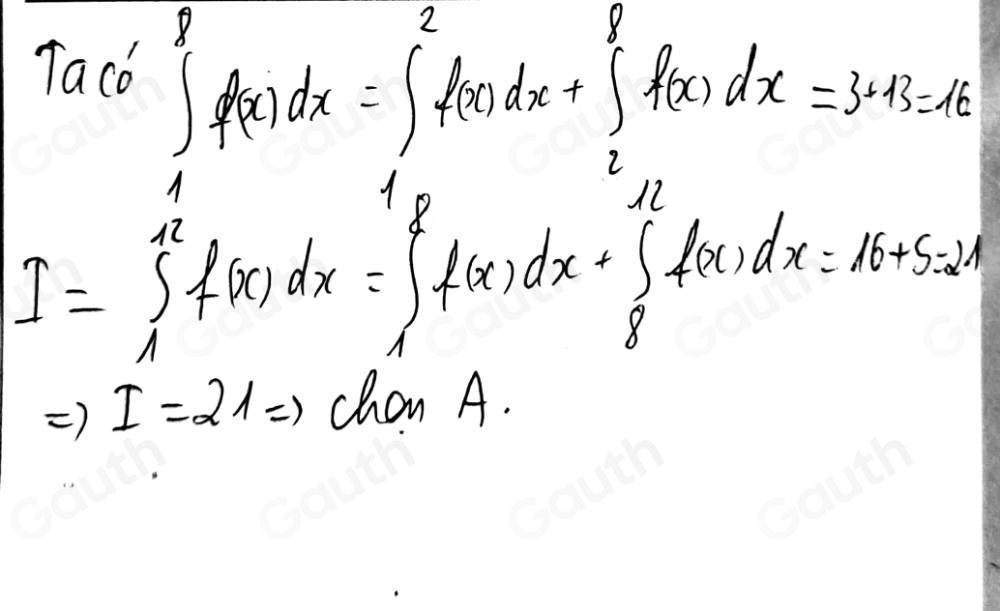 Ta có ∫₁⁸ f(x) dx = ∫₁² f(x) dx + ∫₂⁸ f(x) dx = 3+13=16
I = ∫₁¹² f(x) dx = ∫₁⁸ f(x) dx + ∫₈¹² f(x) dx = 16+5=21
=> I = 21 => chọn A.